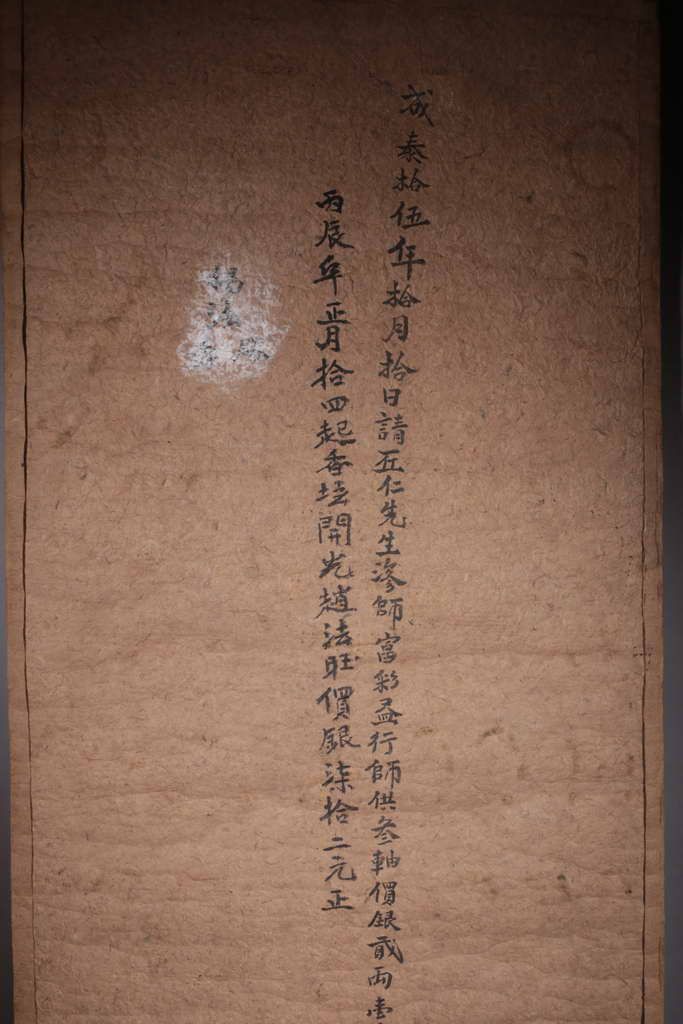 成泰拾伍年拾月拾日請丘仁先生滲師富彩益行師供叁軸價銀貳兩壹
丙辰年正月拾四起香坛開光趙法旺價銀柒拾二元正